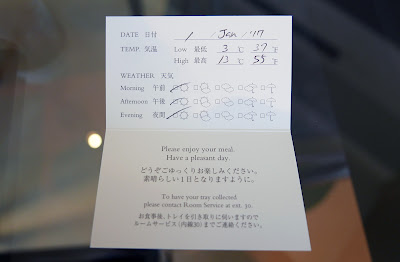 DATE 日付 1 / Jan / '17
TEMP. 気温 Low 最低 3 ℃ 37 ℉
High 最高 13 ℃ 55 ℉
WEATHER 天気
Morning 午前
Afternoon 午後
Evening 夜間
Please enjoy your meal.
Have a pleasant day.
どうぞごゆっくりお楽しみください。
素晴らしい1日となりますように。
To have your tray collected
please contact Room Service at ext. 30.
お食事後、トレイを引き取りに伺いますので
ルームサービス(内線30)までご連絡ください。